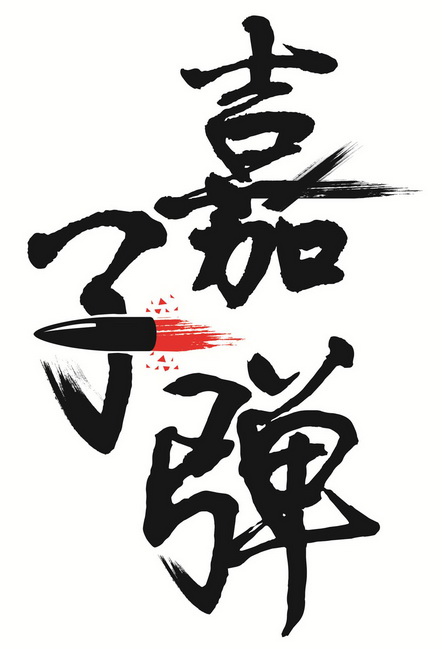 嘉
子
弹